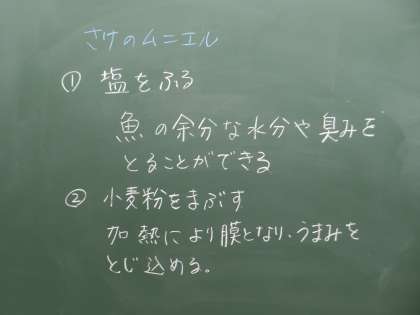 さけのムニエル
① 塩をふる
魚の余分な水分や臭みを
とることができる
② 小麦粉をまぶす
加熱により膜となり、うまみを
とじ込める。